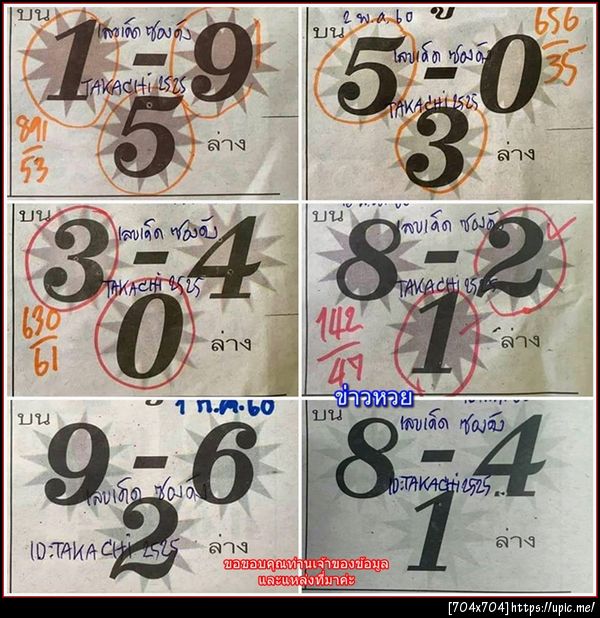 บน
เลขเด็ด ซองดัง
1 - 9
TAKACHI 2525
5
ล่าง
891
53
บน
2 พ.ค. 60
เลขเด็ด ซองดัง
656
35
5 - 0
TAKACHI 2525
3
ล่าง
บน
เลขเด็ด ซองดัง
3 - 4
TAKACHI 2525
0
ล่าง
630
61
บน
เลขเด็ด ซองดัง
8 - 2
TAKACHI 2525
1
ล่าง
142
47
ข่าวหวย
บน
1 ก.ค. 60
9 - 6
เลขเด็ด ซองดัง
2
ID:TAKACHI 2525
ล่าง
บน
เลขเด็ด ซองดัง
8 - 4
ID:TAKACHI 2525
1
ล่าง
ขอขอบคุณท่านเจ้าของข้อมูล
และแหล่งที่มาค่ะ
[704x704]https://upic.me/